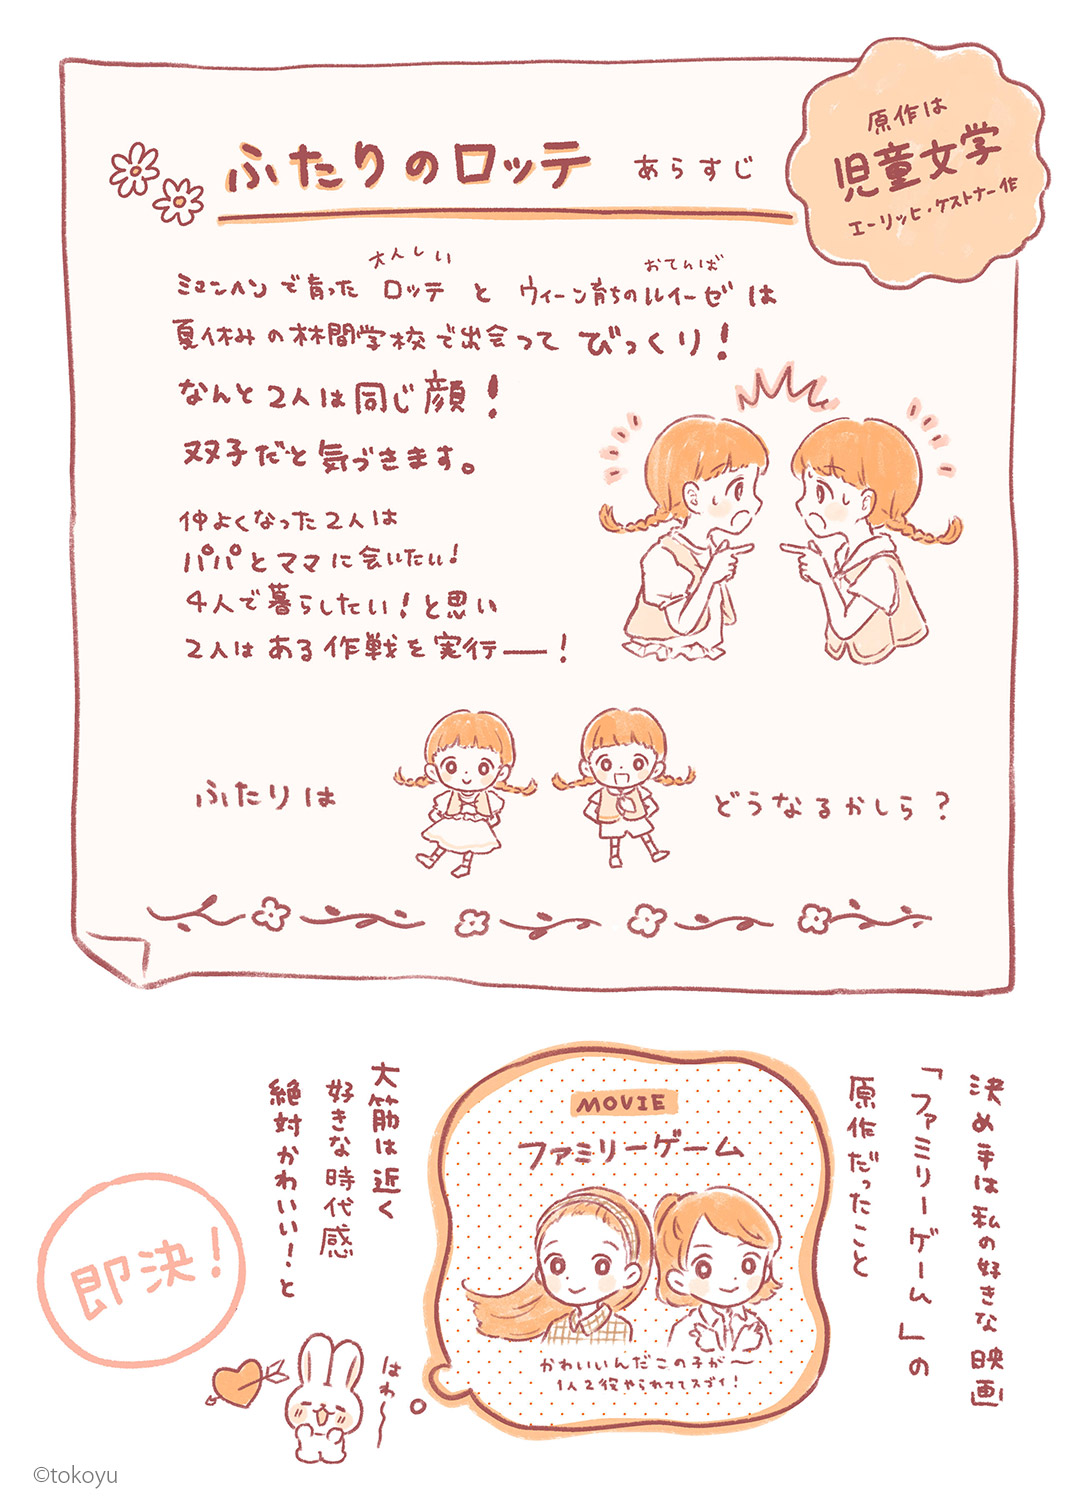 ふたりのロッテ あらすじ
原作は
児童文学
エーリッヒ・ケストナー作
大人しい
おてんば
ミュンヘンで育ったロッテとウィーン育ちのルイーゼは
夏休みの林間学校で出会ってびっくり!
なんと2人は同じ顔!
双子だと気づきます。
仲よくなった2人は
パパとママに会いたい!
4人で暮らしたい!と思い
2人はある作戦を実行——!
ふたりは どうなるかしら?
決め手は私の好きな映画
「ファミリーゲーム」の
原作だったこと
MOVIE
ファミリーゲーム
かわいいんだこの子が〜
1人2役やられててスゴイ!
大筋は近く
好きな時代感
絶対かわいい!と
即決!
はわ〜
©tokoyu